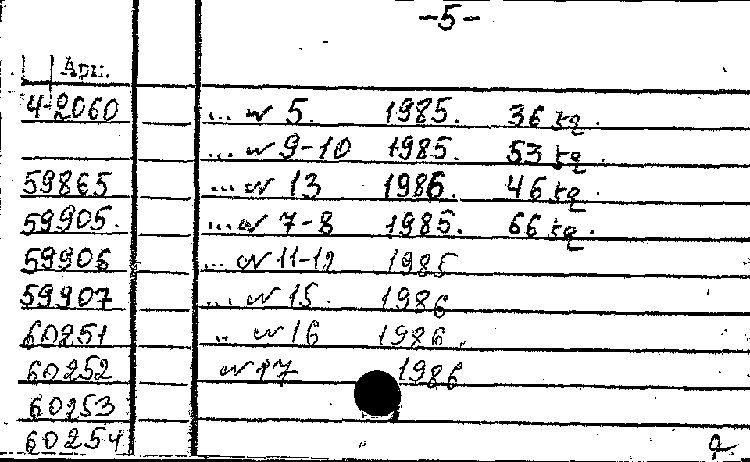 -5-
Арм.
4-2060 ... № 5. 1985. 36 kg.
... № 9-10 1985. 53 kg.
59865 ... № 13 1986. 46 kg.
59905. ... № 7-8 1985. 66 kg.
59906 ... № 11-12 1985
59907 ... № 15. 1986
60251 .. № 16 1986.
60252 № 17 1986
60253
60254